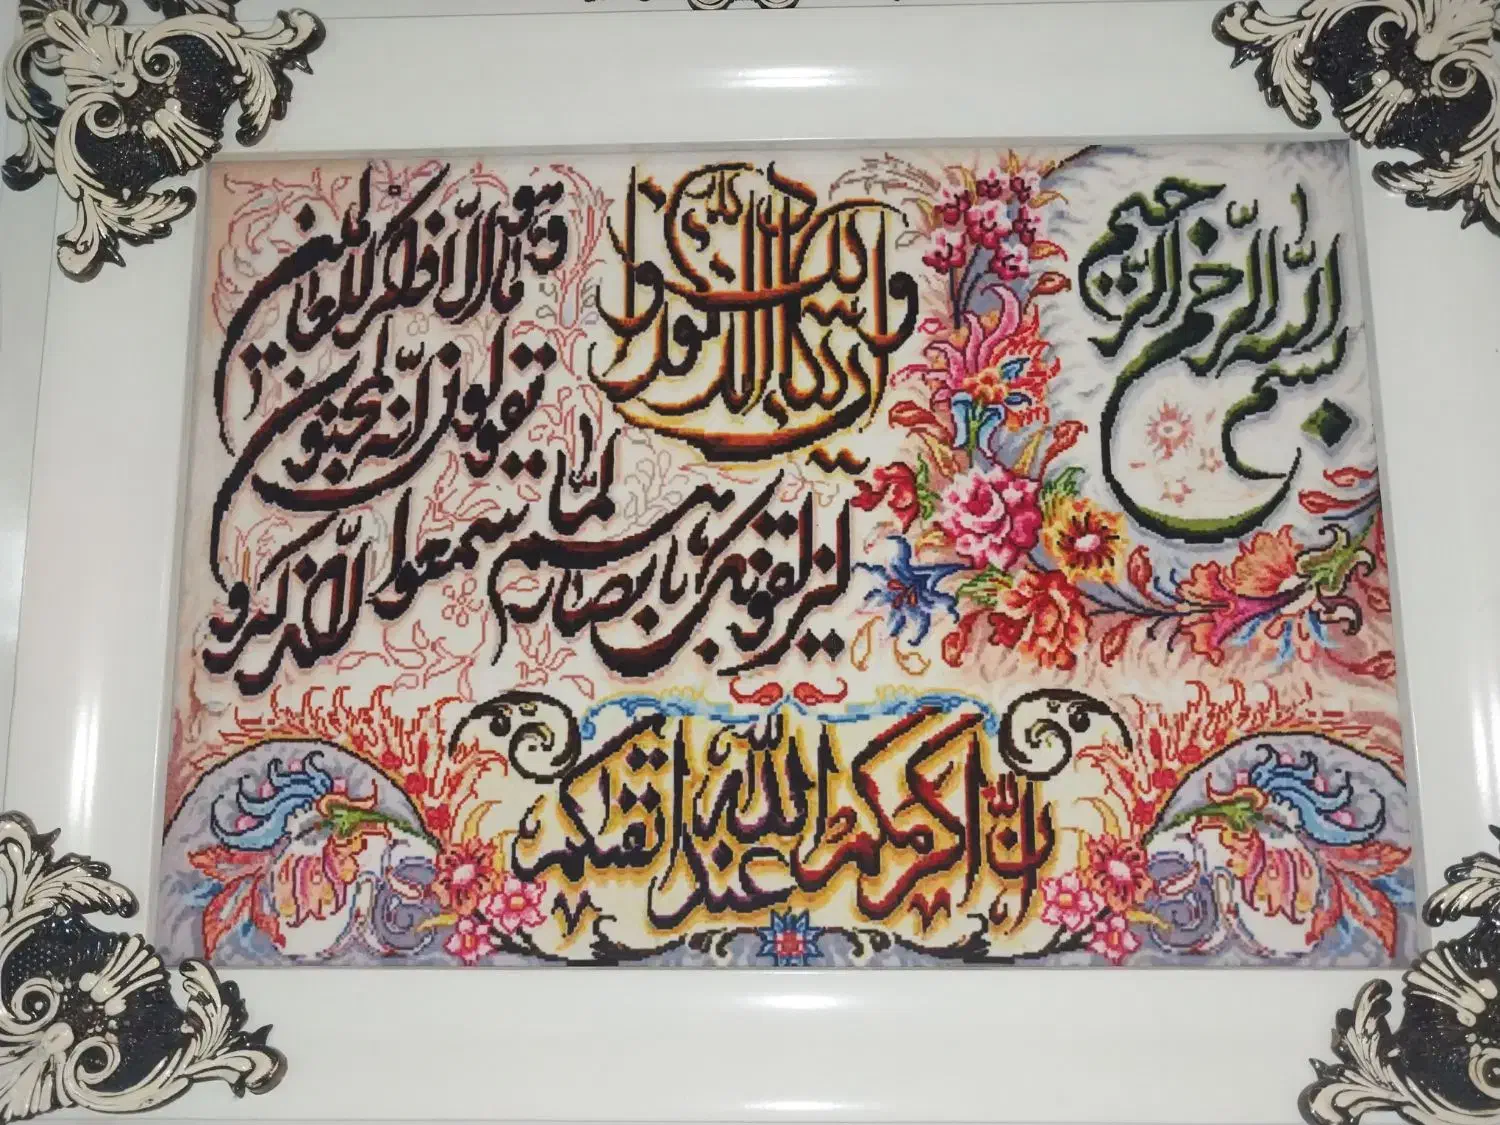 بسم الله الرحمن الرحیم
و ان یکاد الذین کفروا
لیزلقونک بابصارهم لما سمعوا الذکر و
یقولون انه لمجنون
و ما هو الا ذکر للعالمین
ان اکرمکم عند الله اتقیکم